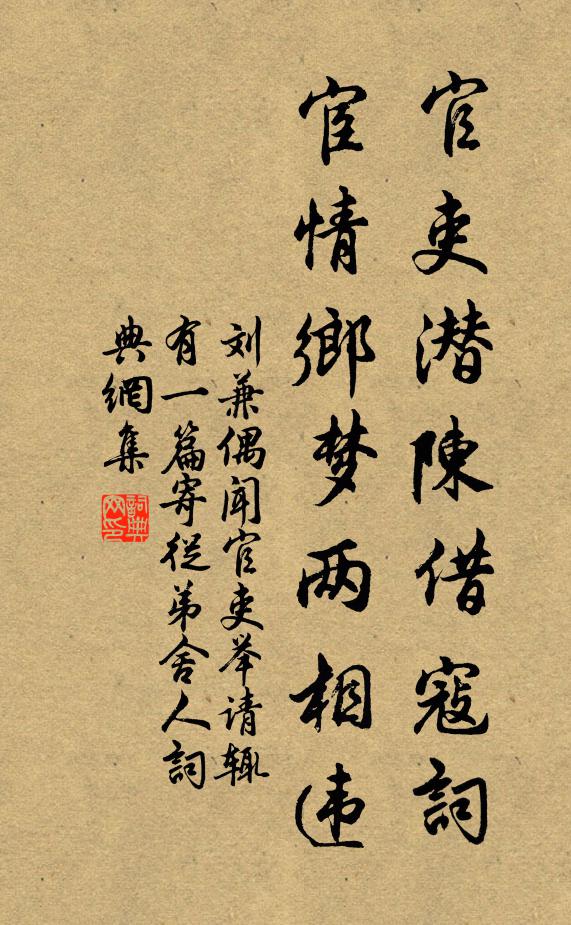 官吏潜陳借寇詞
宦情鄉梦两相违
刘兼偶闻官吏举请辄
有一篇寄從弟舍人詞
典網集
詞典网印